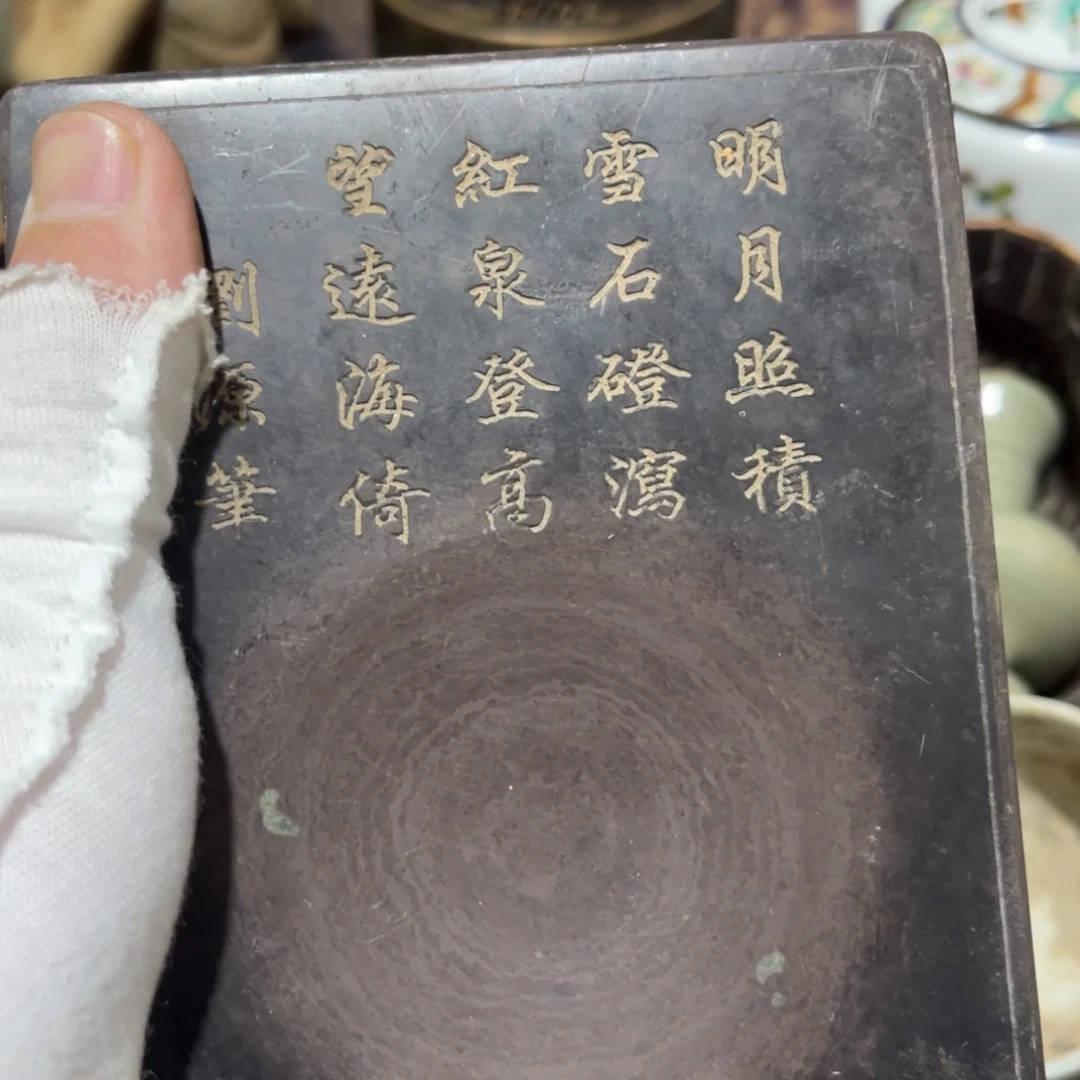 明月照積
雪石磴瀉
紅泉登高
望遠海倚
劉源筆